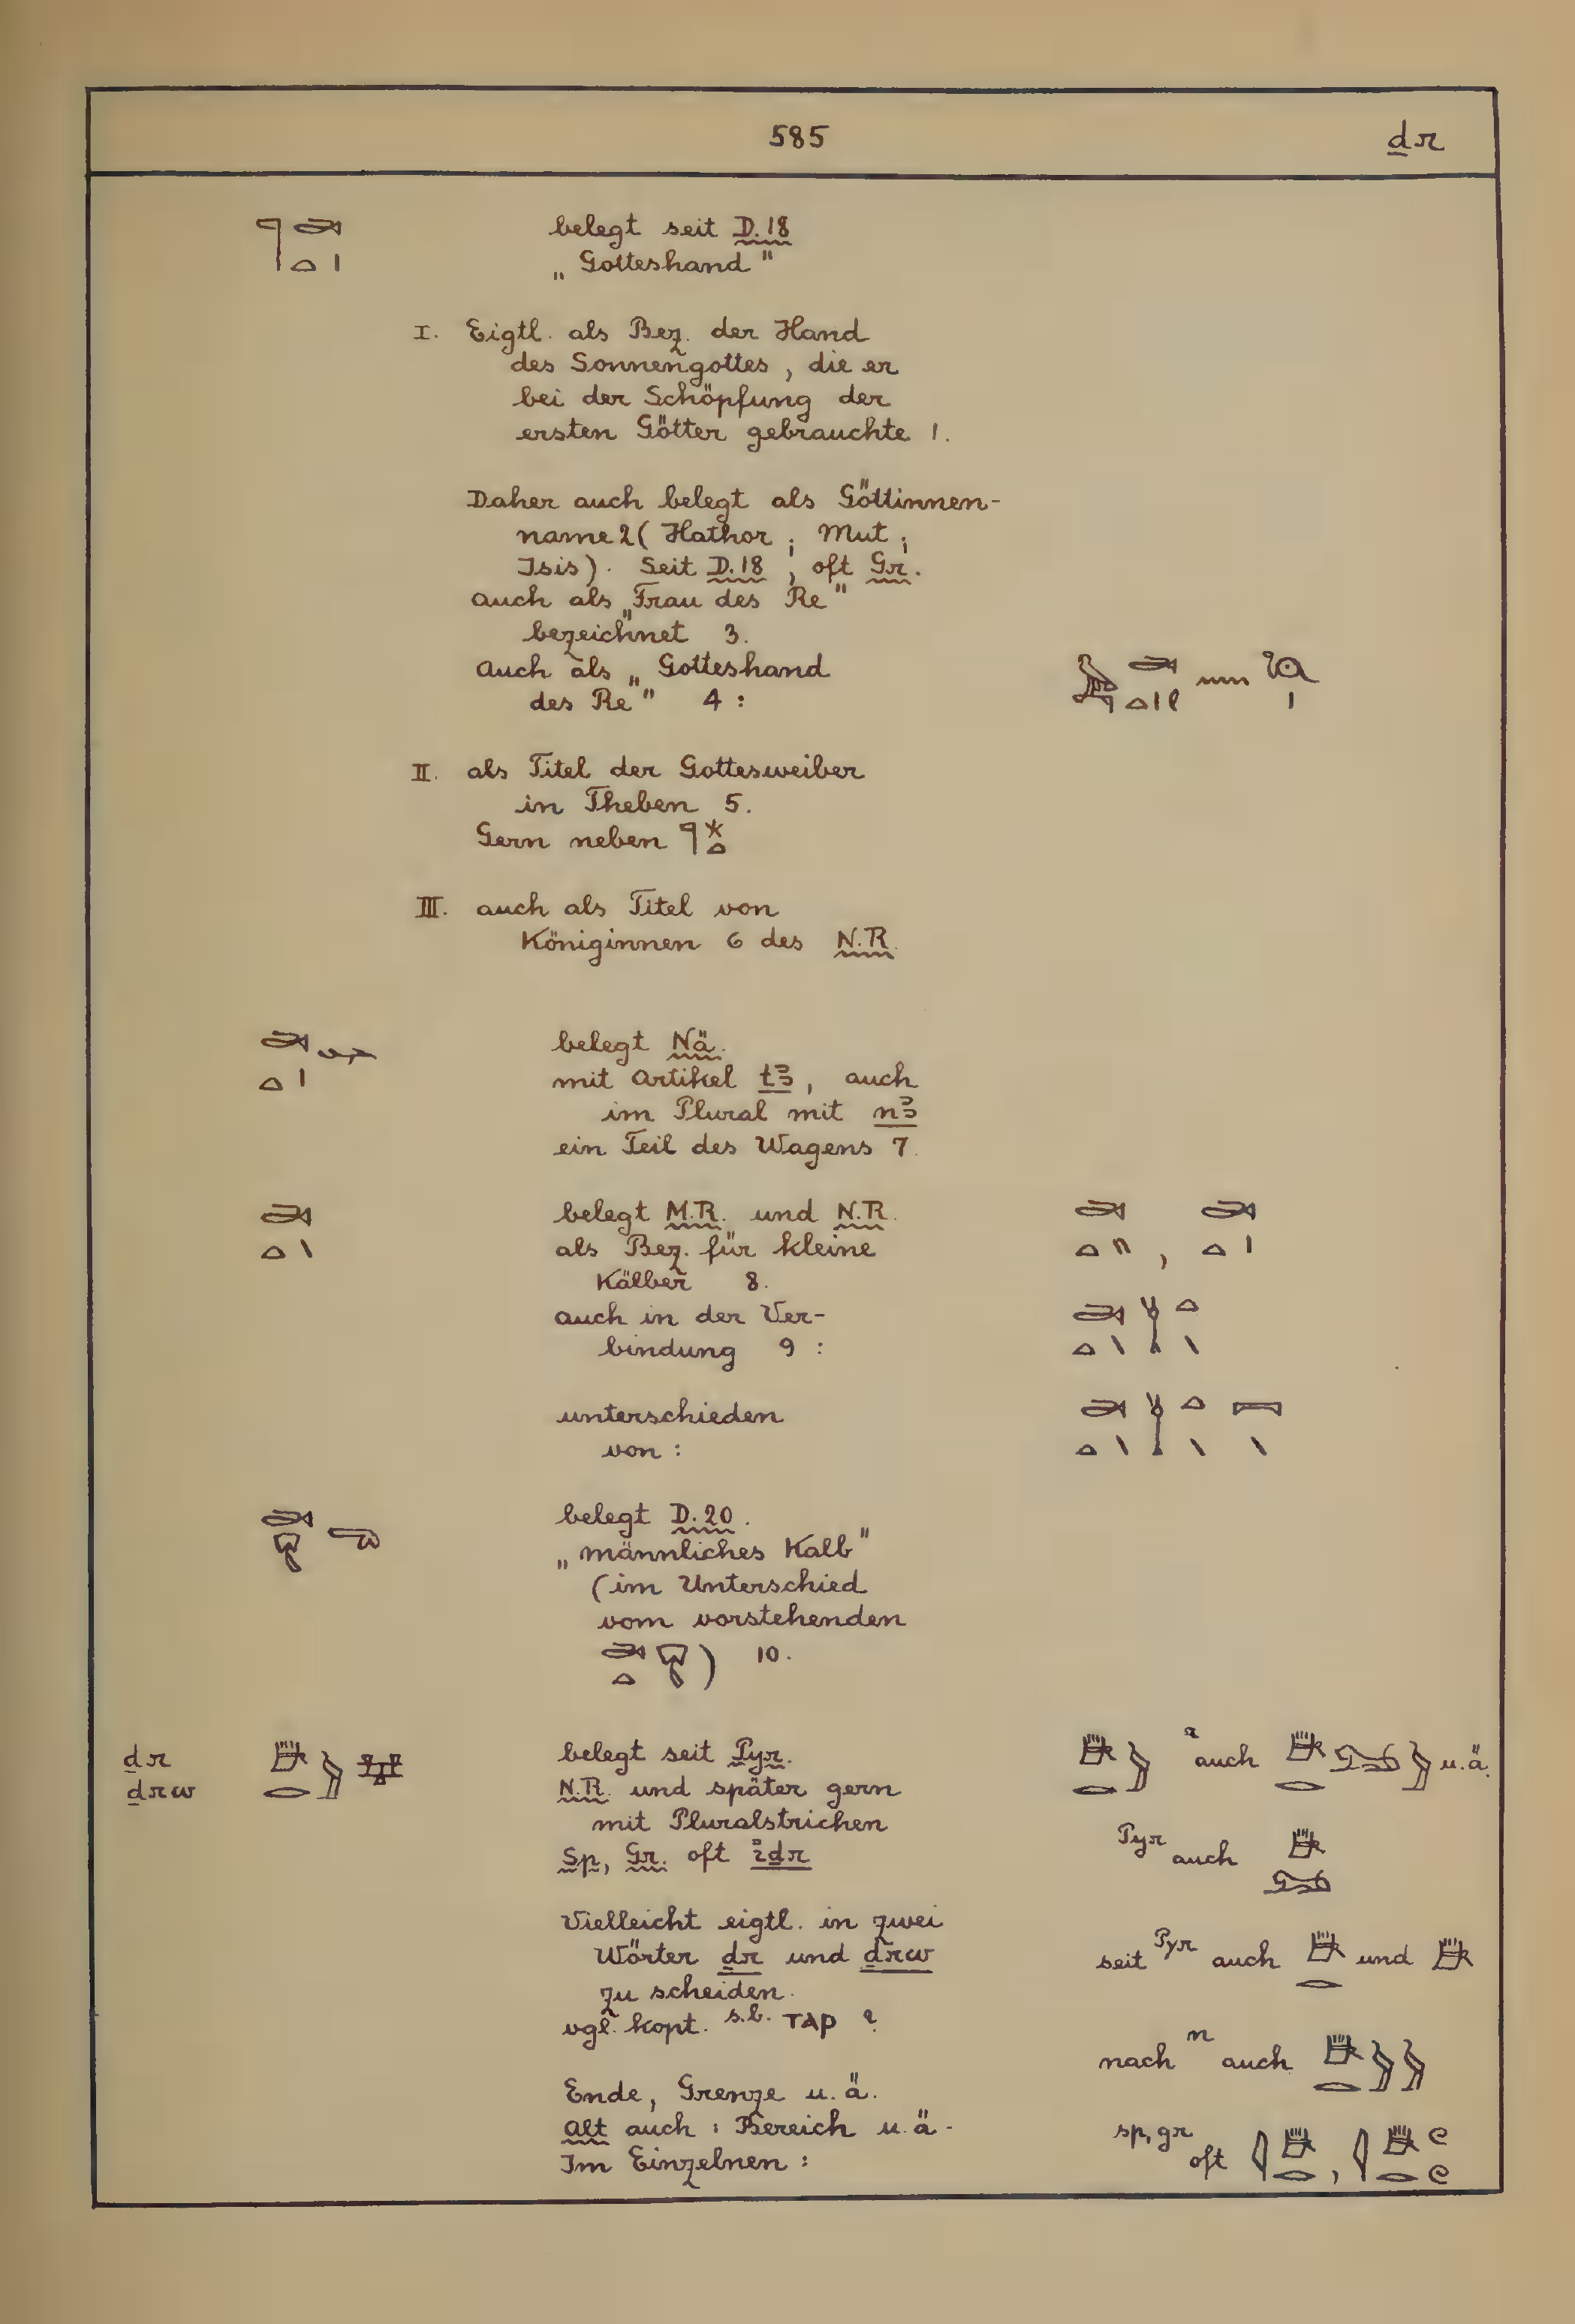 585 ḏr
𓊹𓂧𓏏𓏤 belegt seit D.18
„Gotteshand"
I. Eigtl. als Bez. der Hand
des Sonnengottes, die er
bei der Schöpfung der
ersten Götter gebrauchte 1.
Daher auch belegt als Göttinnen-
name 2 (Hathor; Mut;
Isis). Seit D.18, oft Gr.
auch als „Frau des Re"
bezeichnet 3.
Auch als „Gotteshand
des Re" 4:
II. als Titel der Gottesweiber
in Theben 5.
Gern neben 𓊹𓇼𓏏
III. auch als Titel von
Königinnen 6 des N.R.
𓂧𓏏𓏤𓆱 belegt Nä.
mit Artikel tꜣ, auch
im Plural mit nꜣ
ein Teil des Wagens 7.
𓂧𓏏𓏭 belegt M.R. und N.R.
als Bez. für kleine
Kälber 8.
auch in der Ver-
bindung 9:
unterschieden
von:
belegt D.20.
„männliches Kalb"
(im Unterschied
vom vorstehenden
) 10.
ḏr
ḏrw
belegt seit Pyr.
N.R. und später gern
mit Pluralstrichen
Sp, Gr. oft ı͗ḏr
Vielleicht eigtl. in zwei
Wörter ḏr und ḏrw
zu scheiden.
vgl. kopt. s.b. ⲧⲁⲣ ?
Ende, Grenze u.ä.
Alt auch: Bereich u.ä.
Im Einzelnen:
auch u.ä.
Pyr auch
seit Pyr auch und
nach n auch
sp, gr oft